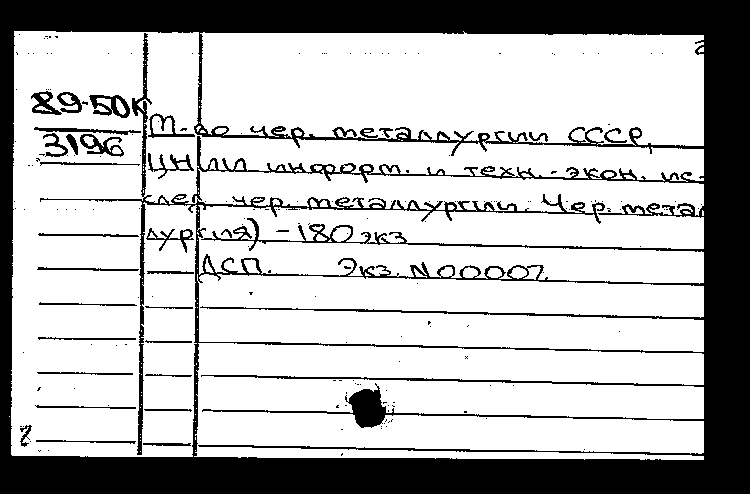 89-50К
3196
М-во чер. металлургии СССР,
ЦНИИ информ. и техн.-экон. ис-
след. чер. металлургии. Чер. метал
лургия) - 180 экз
ДСП. Экз. N 00002